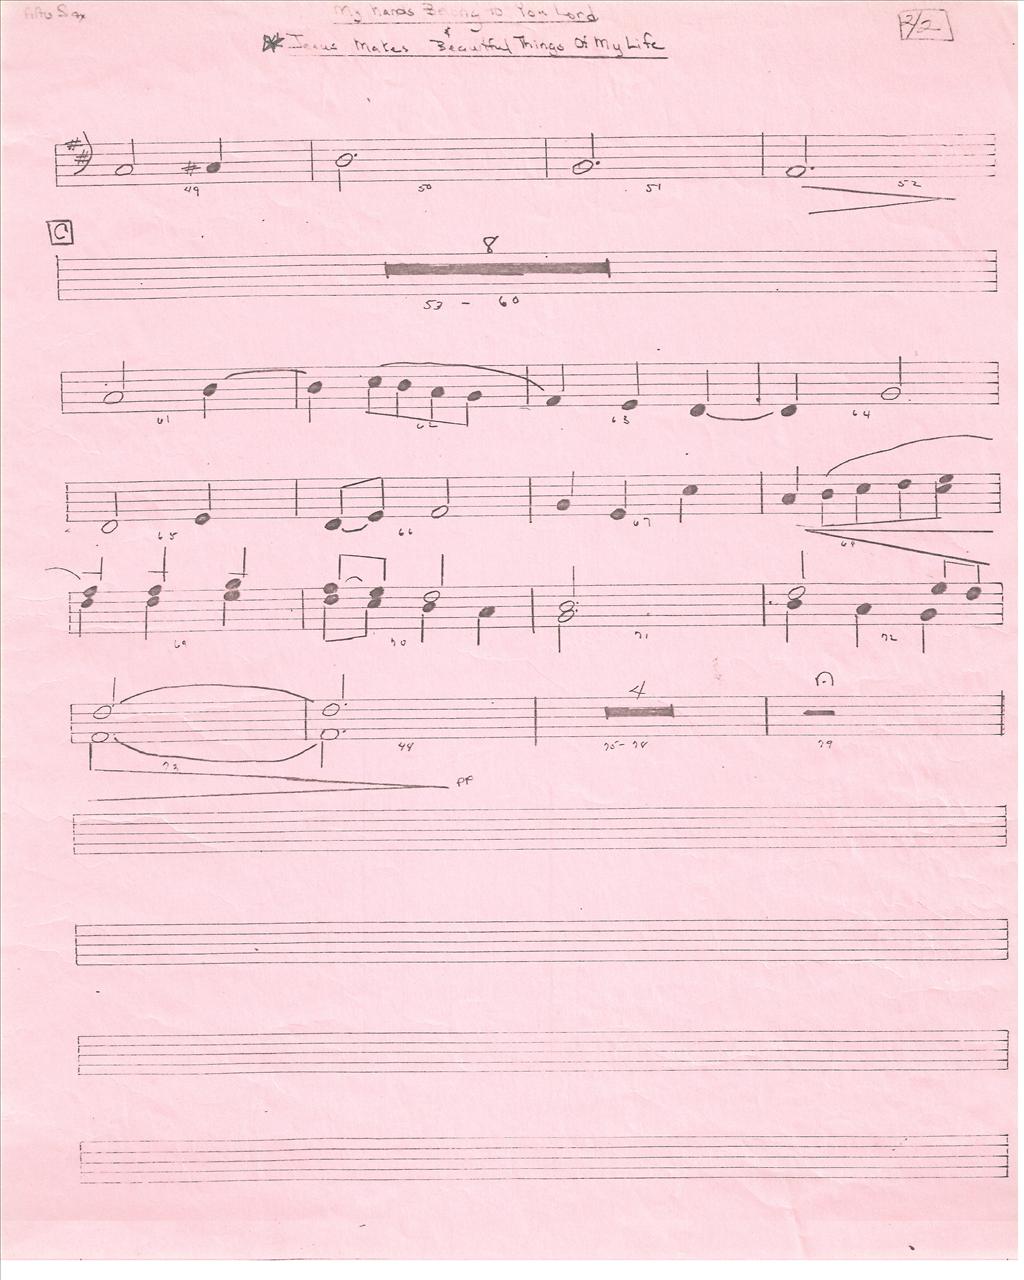 Alto Sax
My Hands Belong to You Lord
2/2
&
Jesus Makes Beautiful Things Of My Life
49 50 51 52
C
8
53 - 60
61 62 63 64
65 66 67 68
69 70 71 72
4
73 44 75-78 79
PP